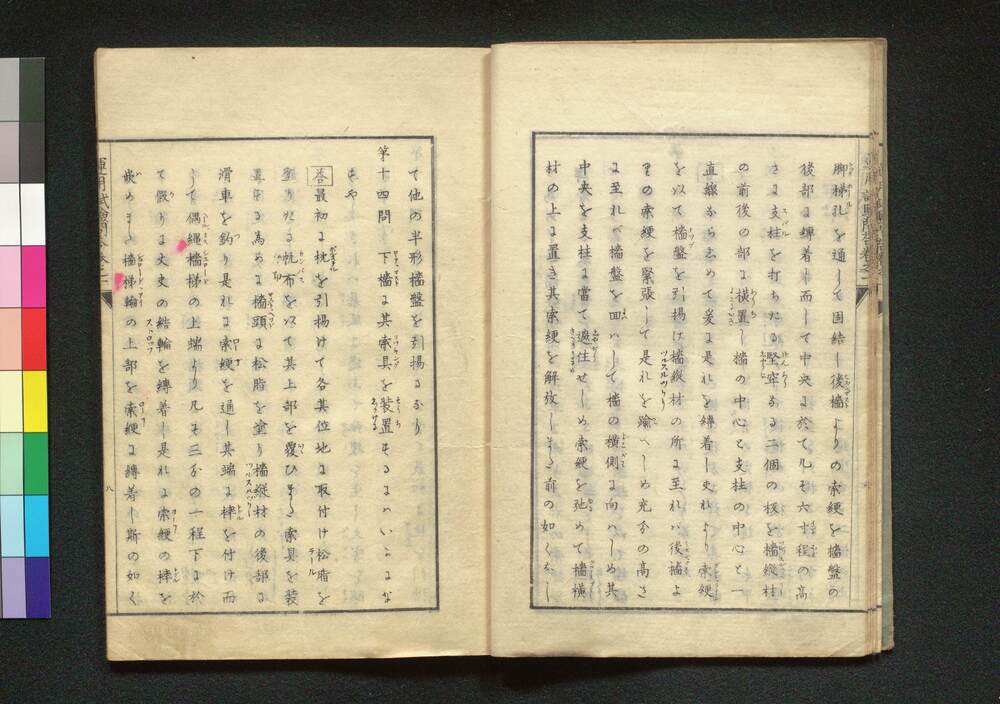 脚梯孔を通して固結し後檣よりの索縄を檣盤の
後部に縛着す而して中央に於て凡そ六寸程の高
さに支柱を打ちたる堅牢なる二個の桜を檣縦材
の前後の部に横置し檣の中心と支柱の中心と一
直線ならしめて爰に是れを縛着し夫れより索縄
を以て檣盤を引揚け檣縦材の所に至れハ後檣よ
りの索縄を緊張して是れを踰へしめ充分の高さ
に至れハ檣盤を回ハして檣の横側に向ハしめ其
中央を支柱に當て遮住せしめ索縄を弛めて檣横
材の上に置き其索縄を解放しまた前の如くなし
て他の半形檣盤を引揚るなり
第十四問 下檣に其索具を装置するにハいかにな
すや
答 最初に枕を引揚けて各其位地に取付け松脂を
塗りたる帆布を以て其上部を覆ひまた索具を装
置する為めに檣頭に松脂を塗り檣縦材の後部に
滑車を釣り是れに索縄を通し其端に棒を付け而
して偶縄檣梯の上端より凡そ三分の一程下に於
て假りに丈夫の結輪を縛着し是れに索縄の捧を
嵌めまた檣梯輪の上部を索縄に縛着し斯の如く
八